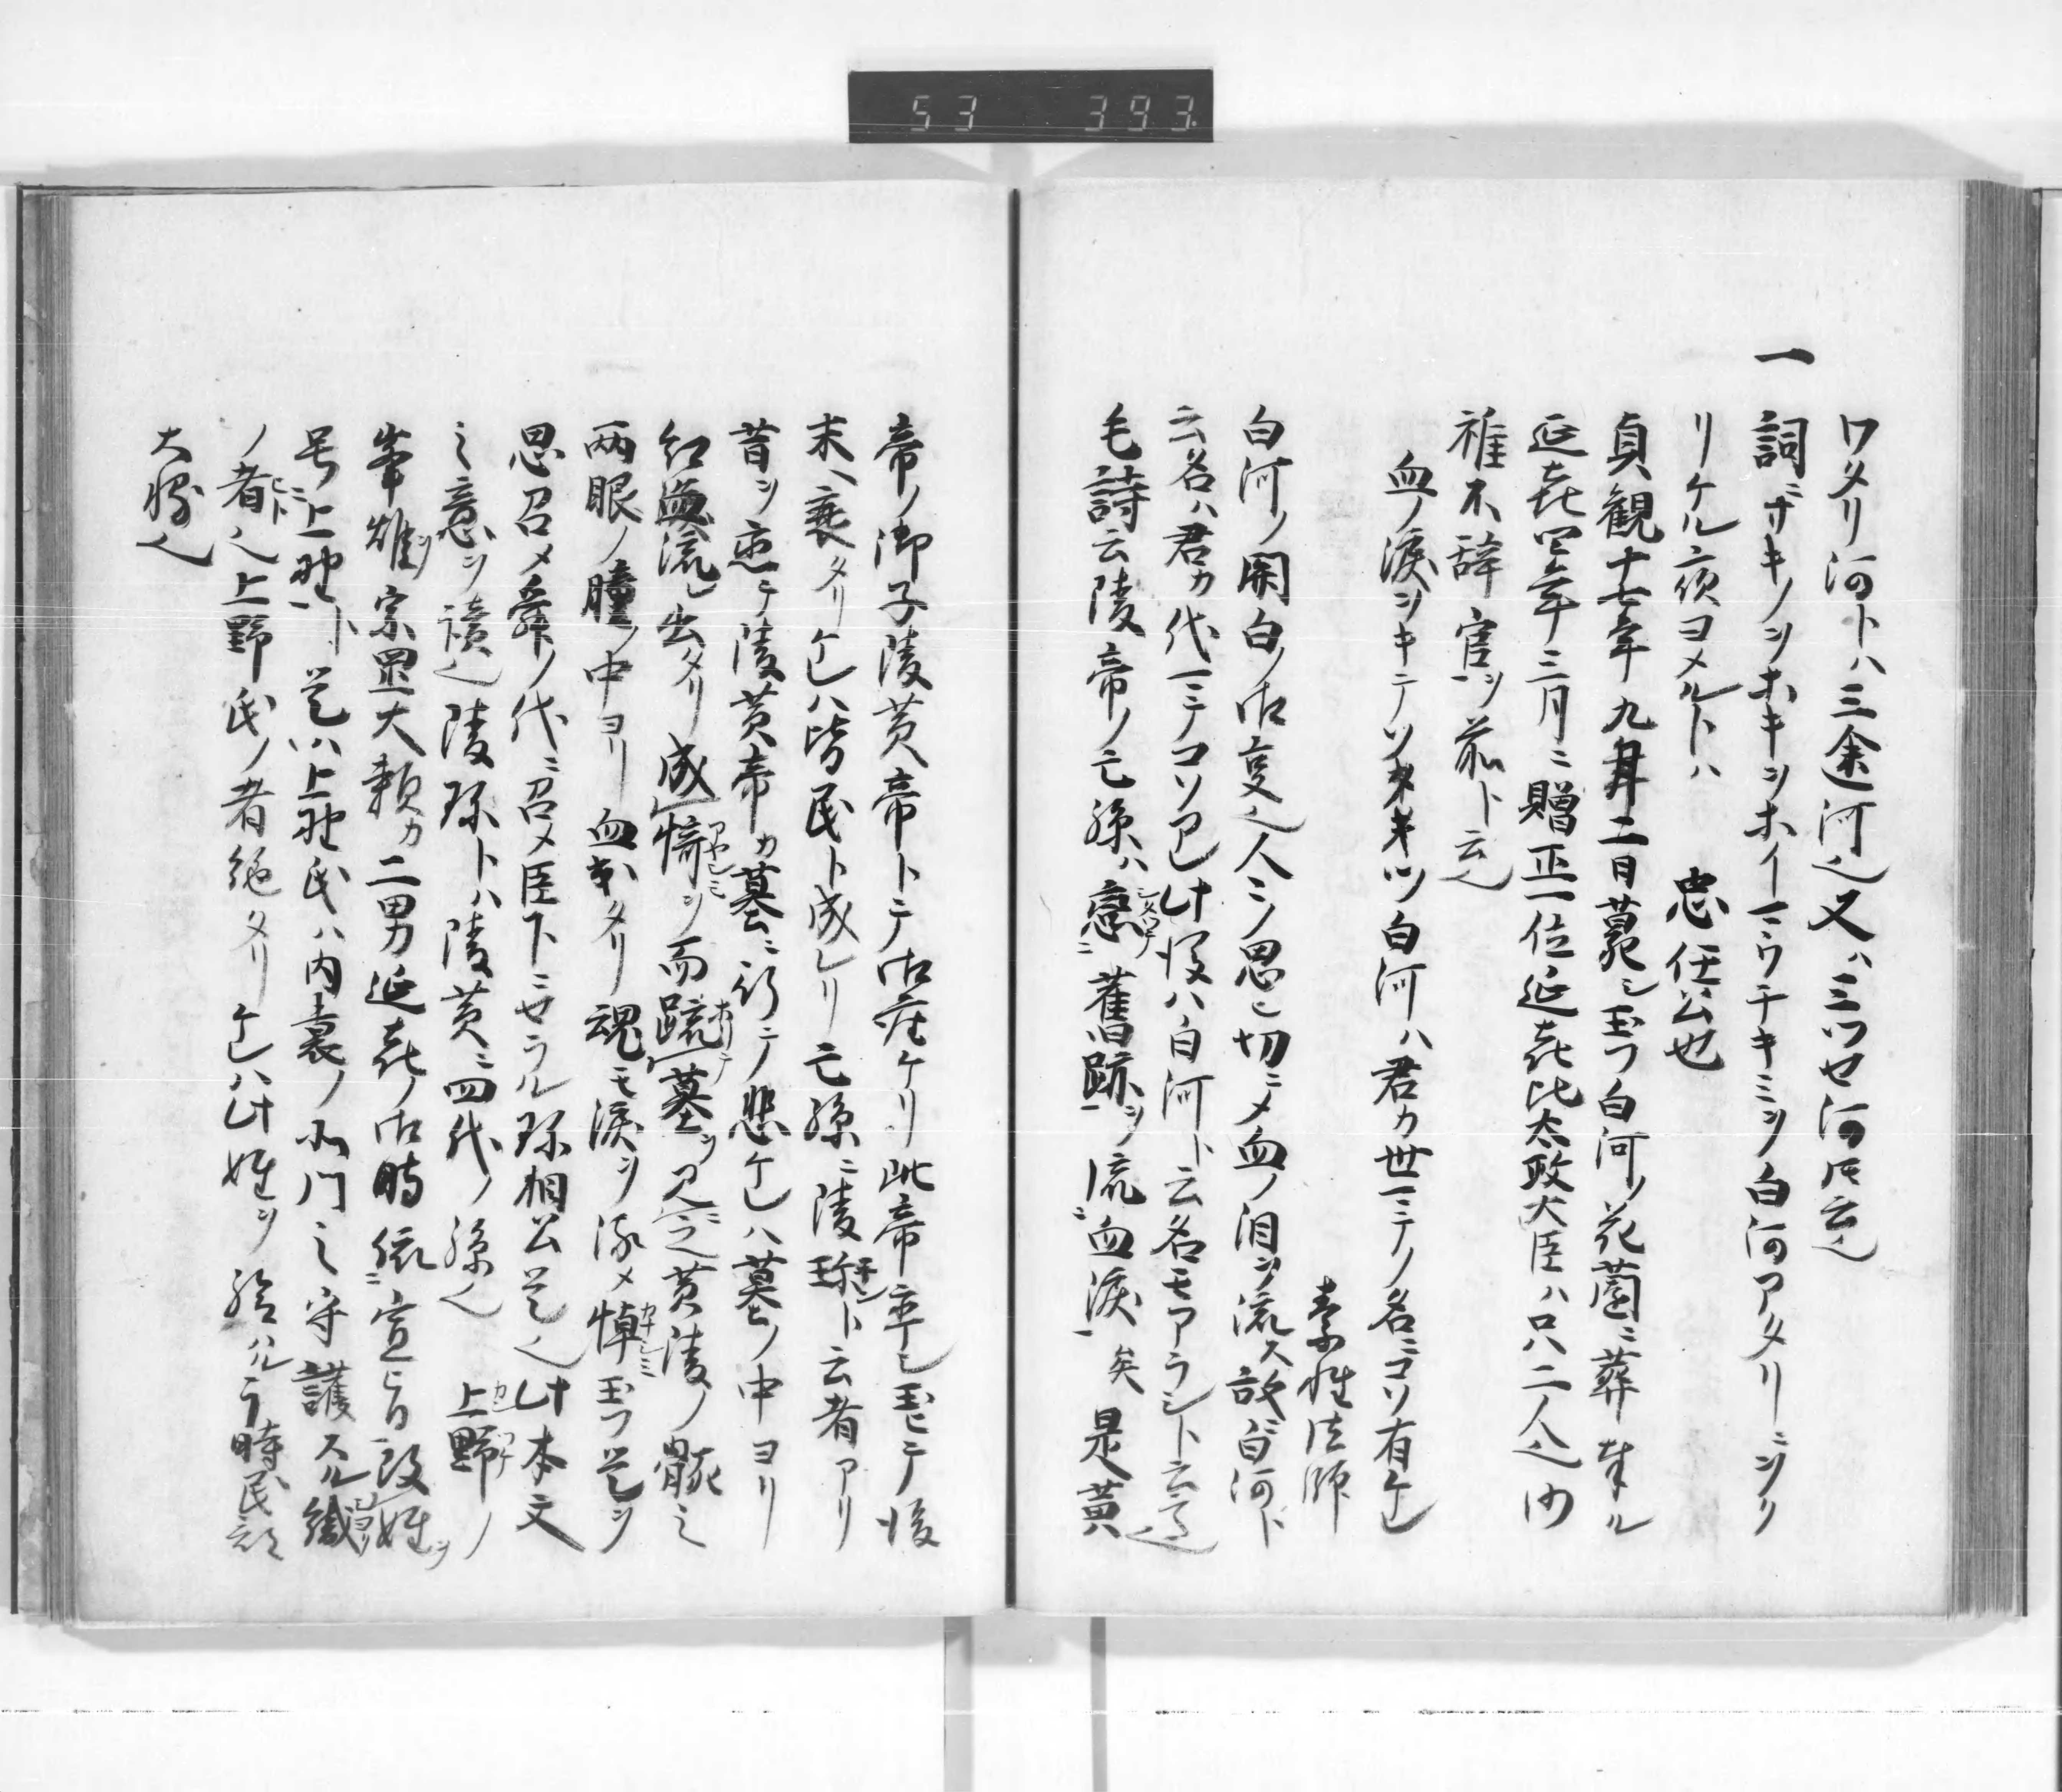 53 393
ワタリ河トハ三途河也又ハ三ツセ河氐云也
一 詞ニサキノヲホキヲホイマウチキミヲ白河アタリニヲク
リケル夜ヨメルトハ 忠仁公也
貞観十七年九月二日薨シ玉フ白河ノ花薗ニ葬奉ル
延㐂四年三月ニ贈正一位延㐂比太政大臣ハ只二人也内
雖不辞官ヲ前ト云也
血ノ涙ヲキテソタキツ白河ハ君カ世マテノ名ニコソ有ケレ
素性法師
白河ノ関白ノ御事也人ヲ思ヒ切ニメ血ノ泪ヲ流ス故ニ白河ト
云名ハ君カ代マテコソアレ此後ハ白河ト云名モアラシト云也
毛詩云陵帝ノ亡孫ハ戀ニ舊跡ヲ流ニ血涙矣 是黄
帝ノ御子陵黄帝トテ御座ケリ此帝卒シ玉ヒテ後
末ハ衰タリケレハ皆民ト成レリ亡孫ニ陵珎ト云者アリ
昔ヲ恋テ陵黄帝カ墓ニ行テ悲ケレハ墓ノ中ヨリ
紅血流レ出タリ成恠ヲ而墓ヲ見ニ之黄陵ノ骸之
両眼ノ瞳ノ中ヨリ血出タリ魂モ涙ヲ流メ悼玉フ是ヲ
思召メ舜ノ代ニ召メ臣下ニセラル珎相公是也此本文
之意ヲ讀也陵珎トハ陵黄ニ四代ノ孫也 上野ノ
峯雄ヲ宗置大頼カ二男延㐂ノ御時依ニ宣旨改姓ヲ
号ニ上野ト是ハ上野氏ハ内裏ノ小門之守護スル織
ノ者也上野氏ノ者絶タリケレハ此姓ヲ給ハル于時民部
大輔也